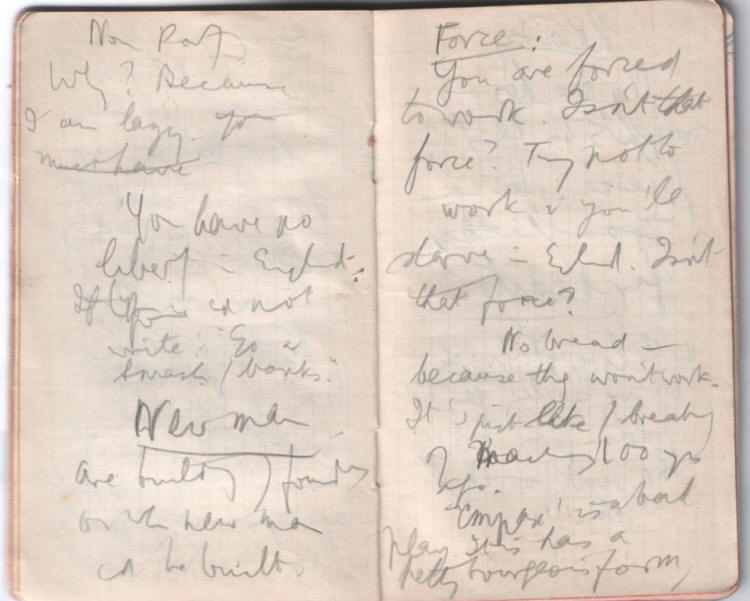 Non Party
Why? Because
I am lazy. you
must have
'You have no
liberty in England.
If you is cd not
write: "Go &
smash / banks."
New man
are building / foundry
on wh new man
cd be built.
Force:
You are forced
to work. Isn't that
force? Try not to
work & you'll
starve in England. Isn't
that force?
No bread —
because they won't work.
It's just like / breaking
of machinery 100 yrs
ago.
is a bad
play. It has a
petty bourgeois form,